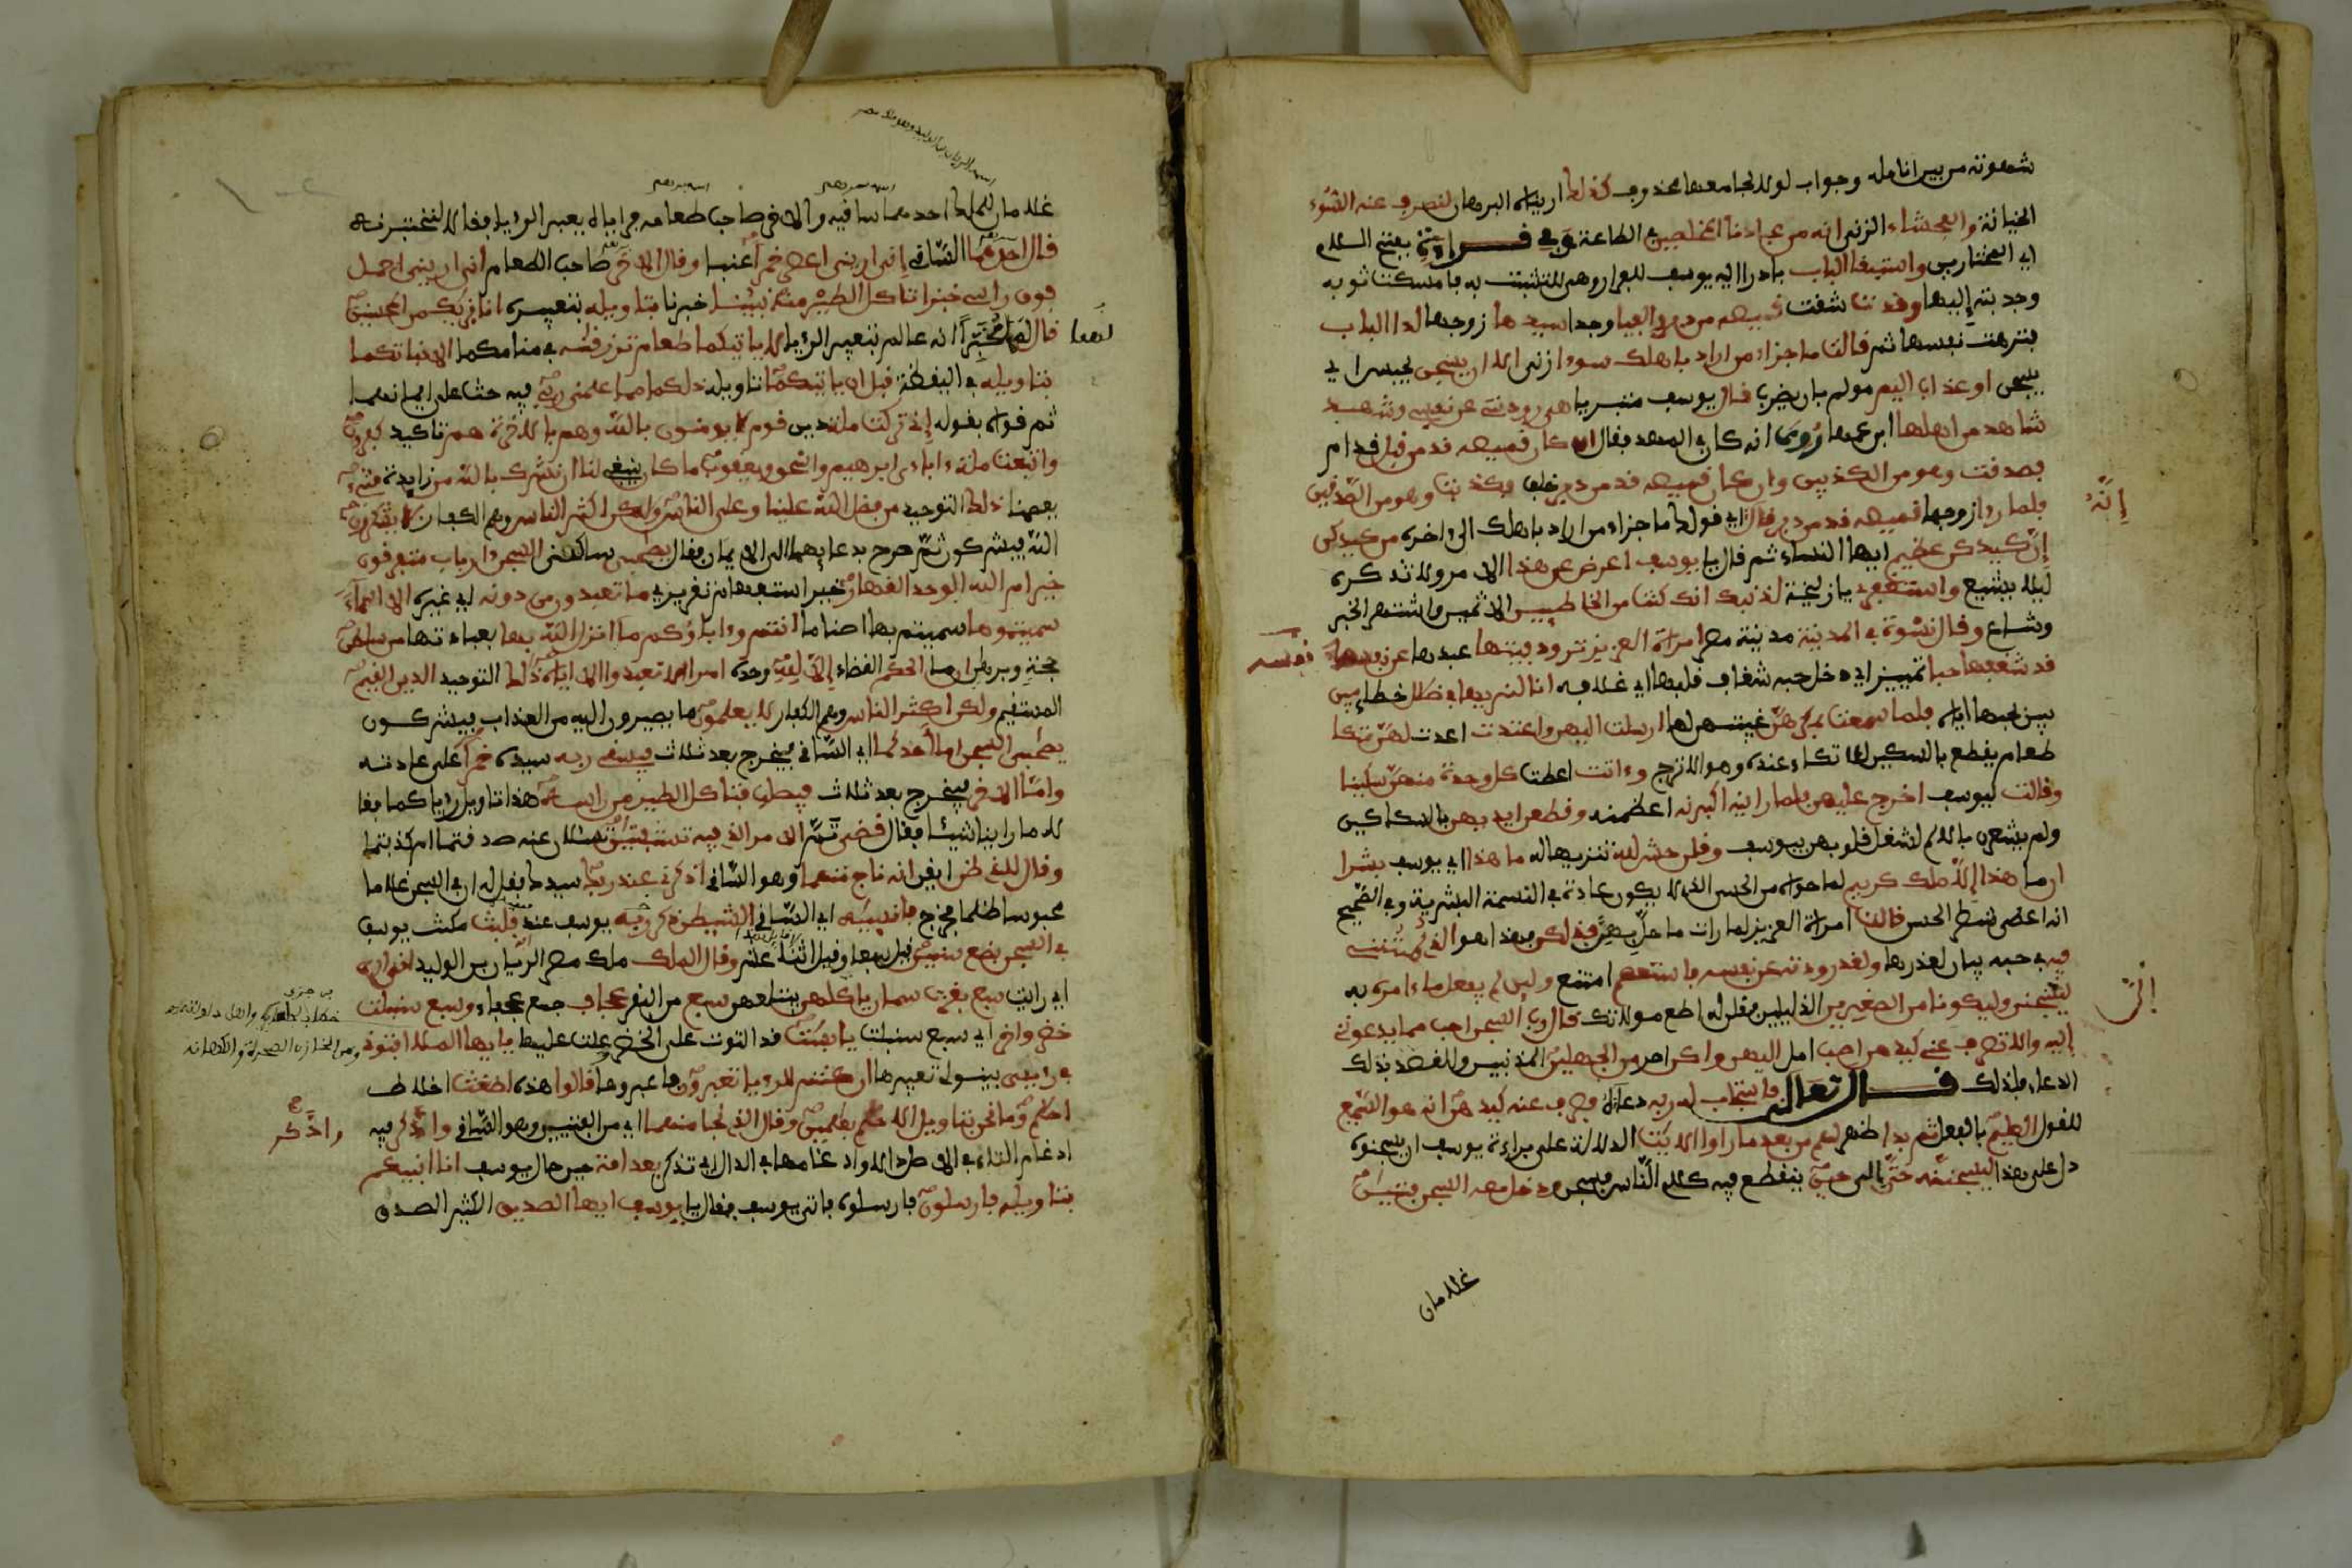 شهوته من بين انامله وجواب لولا لجامعها محذوف كذلك اريناه البرهان لنصرف عنه السوء
الخيانة والفحشاء الزنى انه من عبادنا المخلصين في الطاعة وفي قراءة بفتح اللام
اي المختارين واستبقا الباب بادرا اليه يوسف للفرار وهى للتشبث به فامسكت ثوبه
وجذبته إليها وقدت شقت قميصه من دبر والفيا وجدا سيدها زوجها لدا الباب
فنزهت نفسها ثم قالت ما جزاء من اراد باهلك سوءا زنى الا ان يسجن يحبس اي
سجن او عذاب اليم مولم بان يضرب قال يوسف متبريا هى رودتنى عن نفسى وشهد
شاهد من اهلها ابن عمها روى انه كان في المهد فقال ان كان قميصه قد من قبل قدام
فصدقت وهو من الكذبين وان كان قميصه قد من دبر خلف فكذبت وهو من الصدقين
فلما رءا زوجها قميصه قد من دبر قال اي قولها ما جزاء من اراد باهلك الى ءاخره من كيدكن
إنه
إن كيدكن عظيم ايها النساء ثم قال يا يوسف اعرض عن هذا الامر ولا تذكره
ليلا يشيع واستغفرى يا زليخة لذنبك انك كنت من الخاطيين الاثمين واشتهر الخبر
وشاع وقال نسوة في المدينة مدينة مصر امراة العزيز ترود فيتها عبدها عن نفسه
نفسه
قد شغفها حبا تمييز اي دخل حبه شغاف قلبها اي غلافه انا لنريها في ظلل خطإ مبين
بين لحبها اياه فلما سمعت بمكرهن غيبتهن لها ارسلت اليهن واعتدت اعدت لهن متكا
طعام يقطع بالسكين للاتكاء عنده وهو الاترج وءاتت اعطت كل وحدة منهن سكينا
وقالت ليوسف اخرج عليهن فلما راينه اكبرنه اعظمنه وقطعن ايديهن بالسكاكين
ولم يشعرن بالالم لشغل قلوبهن بيوسف وقلن حش لله تنزيها له ما هذا اي يوسف بشرا
ان ما هذا إلا ملك كريم لما حواه من الحسن الذي لا يكون عادة في النسمة البشرية وفي الصحيح
انه اعطى شطر الحسن قالت امراة العزيز لما رات ما حل بهن فذلكن فهذا هو الذي لمتننى
فيه في حبه بيان لعذرها ولقد رودته عن نفسه فاستعصم امتنع ولين لم يفعل ما ءامره به
ليسجنن وليكونا من الصغرين الذليلين فقلن له اطع مولاتك قال رب السجن احب مما يدعوننى
إليه والا تصرف عنى كيدهن اصب امل اليهن واكن اصر من الجهلين المذنبين والقصد بذلك
الدعاء فلذلك قال تعالى فاستجاب له ربه دعاءه فصرف عنه كيدهن انه هو السميع
للقول العليم بالفعل ثم بدا ظهر لهم من بعد ما راوا الايت الدلالت على براءة يوسف ان يسجنوه
دل على هذا ليسجننه حتى الى حين ينقطع فيه كلام الناس فسجن ودخل معه السجن فتين
غلامان
غلامان للملك احدهما ساقيه والاخر صاحب طعامه فراياه يعبر الرؤيا فقالا لنختبرنه
قال احدهما الساقى إنى ارينى اعصر خمرا عنبا وقال الاخر صاحب الطعام انى ارينى احمل
فوق راسى خبزا تاكل الطير منه نبينا خبرنا بتاويله بتعبيره انا نريك من المحسنين
قال لهما مخبرا انه عالم بتعبير الرؤيا لا ياتيكما طعام ترزقنه في منامكما الا نباتكما
لهما
بتاويله في اليقظة قبل ان ياتيكما تاويله ذلكما مما علمنى ربى فيه حث على ايمانهما
ثم قواه بقوله إنى تركت ملة دين قوم لا يومنون بالله وهم بالاخرة هم تاكيد كفرون
واتبعت ملة ءاباءى ابرهيم واسحق ويعقوب ما كان ينبغى لنا ان نشرك بالله من زايدة شىء
لعصمتنا ذلك التوحيد من فضل الله علينا وعلى الناس ولكن اكثر الناس وهم الكفار لا يشكرون
الله فيشركون ثم صرح بدعايهما الى الايمان فقال يصحبى ساكنى السجن ءارباب متفرقون
خير ام الله الوحد القهار خير استفهام تقرير ما تعبدون من دونه اي غيره الا اسماء
سميتموها سميتم بها اصناما انتم وءاباؤكم ما انزل الله بها بعبادتها من سلطن
حجة وبرهان ان ما الحكم القضاء إلا لله وحده امر الا تعبدوا الا اياه ذلك التوحيد الدين القيم
المستقيم ولكن اكثر الناس وهم الكفار لا يعلمون ما يصيرون اليه من العذاب فيشركون
يصحبى السجن اما احدكما اي الساقى فيخرج بعد ثلاث فيسقى ربه سيده خمرا على عادته
واما الاخر فيخرج بعد ثلاث فيصلب فتاكل الطير من راسه هذا تاويل رؤياكما فقا
لا ما راينا شيئا فقال قضى تم الامر الذي فيه تستفتين تسئلان عنه صدقتما ام كذبتما
وقال للذى ظن ايقن انه ناج منهما وهو الساقى اذكرنى عند ربك سيدك فقل له ان في السجن غلاما
محبوسا ظلما فخرج فانسيه اي الساقى الشيطن ذكر ربه يوسف عند فلبث مكث يوسف
في السجن بضع سنين قيل سبعا وقيل اثنتا عشر وقال الملك ملك مصر الريان بن الوليد انى ارى
اي رايت سبع بقرت سمان ياكلهن يبتلعهن سبع من البقر عجاف جمع عجفاء وسبع سنبلت
خضر واخر اي سبع سنبلت يابست قد التوت على الخضر وعلت عليها يايها الملا افتونى
في رءيى بينوا لى تعبيرها ان كنتم للرءيا تعبرون فاعبروها قالوا هذه اضغث اخلاط
احلم وما نحن بتاويل الاحلم بعلمين وقال الذى نجا منهما اي من الفتيين وهو الساقى وادكر فيه
واذكر
ادغام التاء في الاصل دالا وادغامها في الدال اي تذكر بعد امة حين حال يوسف انا انبيكم
بتاويله فارسلون فارسلوه فاتى يوسف فقال يا يوسف ايها الصديق الكثير الصدق